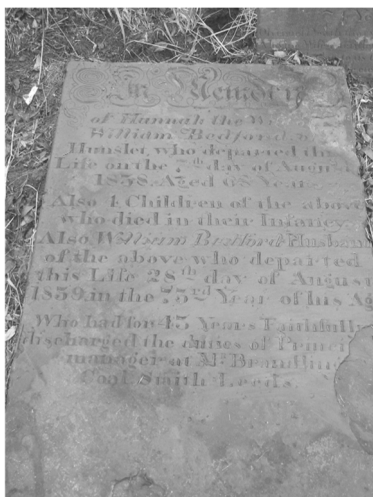 In Memory
of Hannah the
William Bedford
Hunslet, who departed
Life on the 7th day of August
1838. Aged 68 Years
Also 4 Children of the above
who died in their Infancy
Also William Bedford Husband
of the above who departed
this Life 28th day of August
1839, in the 75rd Year of his Ag
Who had for 45 Years Faithfully
discharged the duties of
manager at Mr. Brandling
Leeds.